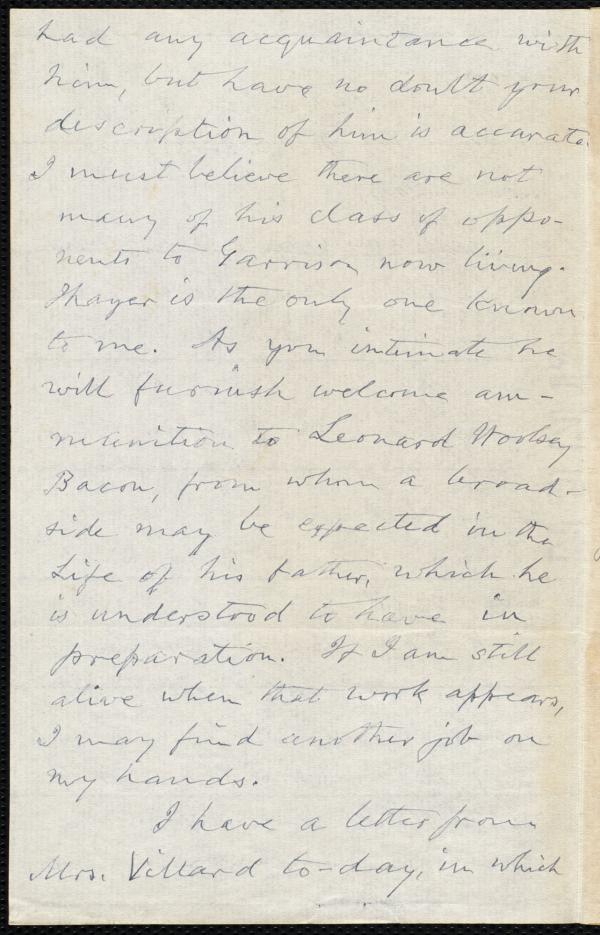 had any acquaintance with
him, but have no doubt your
description of him is accurate.
I must believe there are not
many of his class of oppo-
nents to Garrison now living.
Thayer is the only one known
to me. As you intimate he
will furnish welcome am-
munition to Leonard Woolsey
Bacon, from whom a broad-
side may be expected in the
Life of his father, which he
is understood to have in
preparation. If I am still
alive when that work appears,
I may find another job on
my hands.
I have a letter from
Mrs. Villard to-day, in which